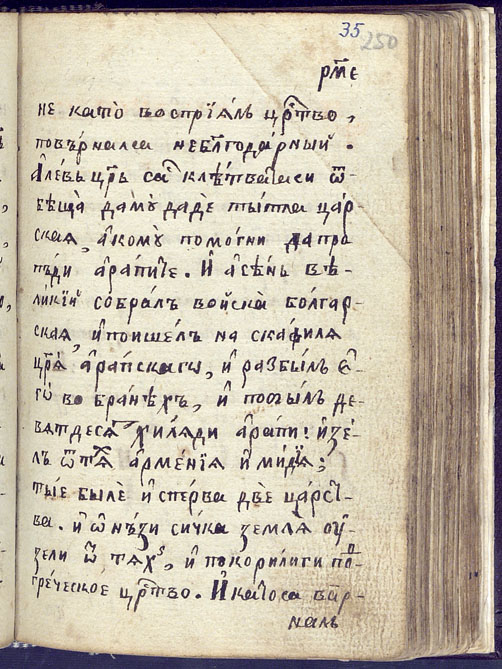 35
250
рм҃е
не като̀ воспрїѧ́лъ цр҃тво,
повърналсѧ неблг҃ода́рный.
А҆ле́ѯа цр҃ь са̑ клѣтва́ласи ѿ
бѣща̀ да мꙋ̀ дадѐ ты́тла цар
скаѧ, а҆кому̀ помогни да про
пъ́ди а҆рапи́те. И҆ а҆се́нь вѣ-
ликїй собра́лъ войска̀ бо́лгар-
скаѧ, и҆ поише́лъ на скафилѧ
цр҃ѧ̀ а҆ра́пскагѡ, и҆ разби́лъ є҆-
гѡ̀ во бране́хъ, и҆ погꙋби́лъ де-
вѧтдесѧ̑т хилѧди а҆рапи! и҆ зе́-
лъ ѿ тѧ̑х а҆рме́нїѧ и҆ ми́дїѧ;
ты́е былѐ и҆ спе́рва двѐ ца́рст-
ва. и҆ ѡ҆нѣ́зи си́чка землѧ̀ ѹ҆
зели ѿ тѧхъ, и҆ покори́лиги по̑д
гре́ческое цр҃тво. И҆ като са ва̑р-
налъ